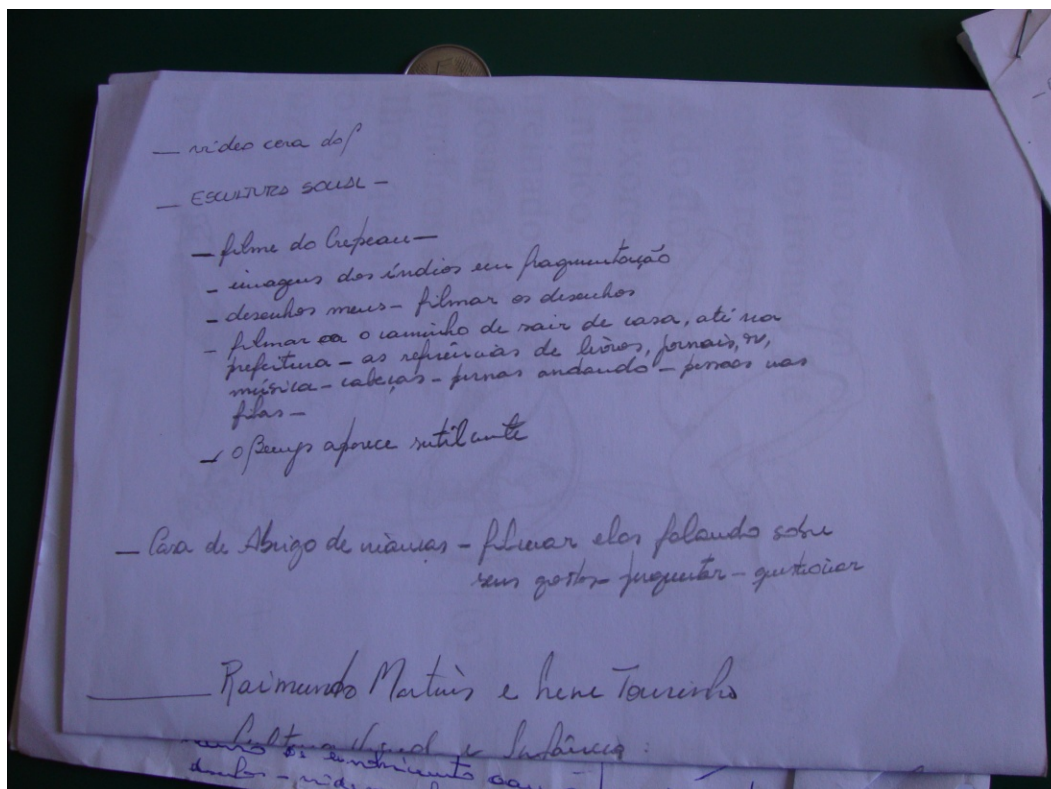 — video cera do
— ESCULTURA SOCIAL —
— filme do Crepeau —
— imagens dos índios em fragmentação
— desenhos meus — filmar os desenhos
— filmar o caminho de sair de casa, até na
prefeitura — as referências de livros, jornais, tv,
música — cabeças — pernas andando — pessoas nas
filas —
— o Beuys aparece sutilmente
— Casa de Abrigo de crianças — filmar elas falando sobre
seus gostos — perguntar — questionar
Raimundo Martins e Irene Tourinho
Cultura Visual e Infância: